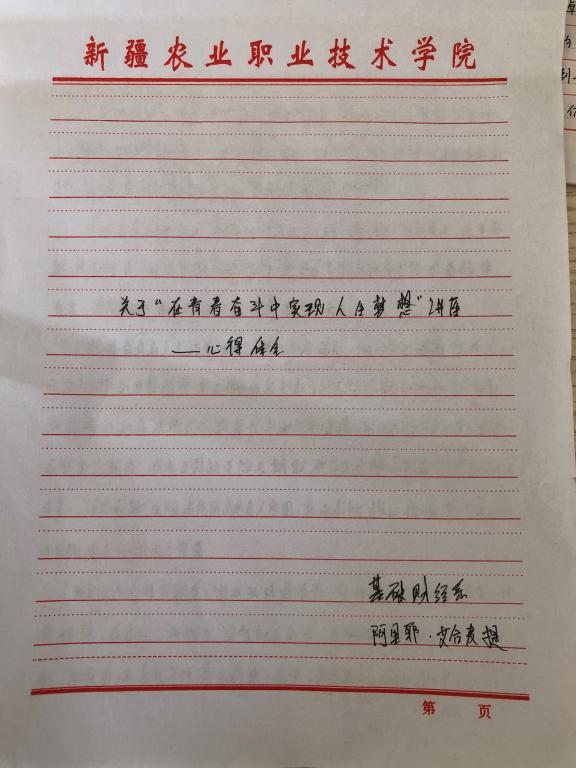 新疆农业职业技术学院
关于“在青春奋斗中实现人生梦想”讲座
——心得体会
基础财经系
阿里耶·艾合麦提
第 页